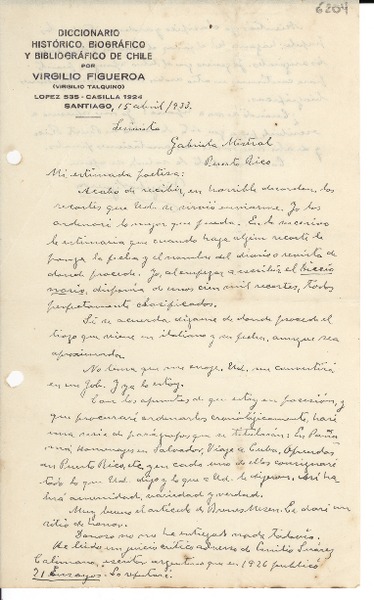 6204
DICCIONARIO
HISTÓRICO, BIOGRÁFICO
Y BIBLIOGRÁFICO DE CHILE
POR
VIRGILIO FIGUEROA
(VIRGILIO TALQUINO)
LOPEZ 535 - CASILLA 1924
SANTIAGO, 15 abril/933.
Señorita
Gabriela Mistral
Puerto Rico
Mi estimada poetisa:
Acabo de recibir, en horrible desorden, los
recortes que Ud. se sirvió enviarme. Yo los
ordenaré lo mejor que pueda. En lo sucesivo
le estimaría que cuando haga algún recorte le
ponga la fecha y el nombre del diario o revista de
donde procede. Yo, al empezar a escribir el Diccio
nario, disponía de unos cien mil recortes, todos
perfectamente clasificados.
Si se acuerda dígame de donde procede el
trozo que viene en italiano y su fecha, aunque sea
aproximada.
No tema que me enoje. Ud. me convertirá
en un Job. Y ya lo estoy.
Con los apuntes de que estoy en posesión, y
que procuraré ordenarlos cronológicamente, haré
una serie de parágrafos que se titularán: En Pana
má, Homenajes en Salvador, Viaje a Cuba, Ofrendas
en Puerto Rico, etc, en cada uno de ellos consignaré
todo lo que Ud. dijo y lo que a Ud. le dijeron. Así ha
brá amenidad, variedad y verdad.
Muy bueno el artículo de Le daré un
sitio de honor.
Donoso no me ha entregado nada todavía.
He leído un juicio crítico adverso de Emilio Suárez
Calimano, escritor argentino que en 1926 publicó
21 Ensayos. Lo refutaré.